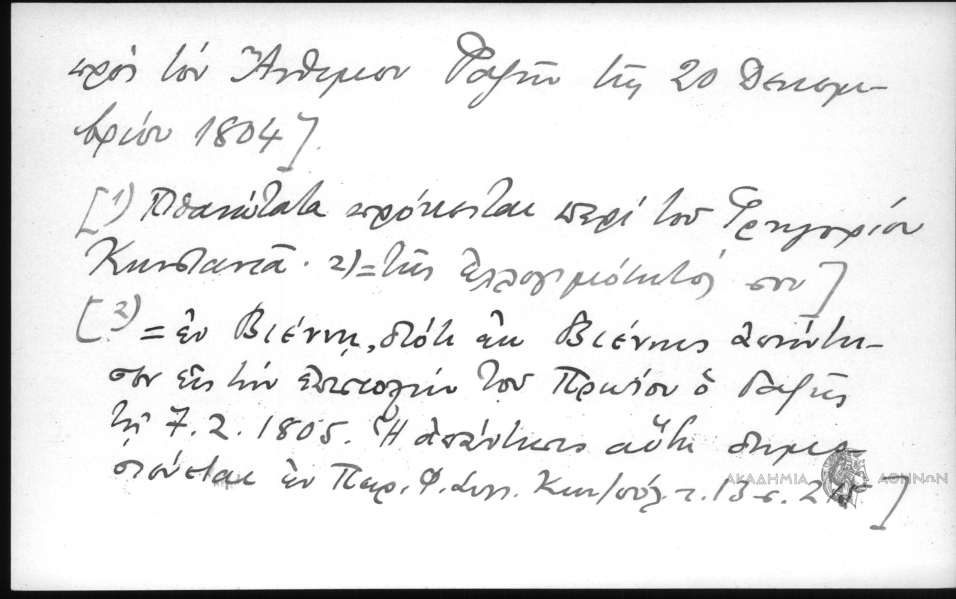 πρὸς τὸν Ἄνθιμον Γαζῆν τῆς 20 Δεκεμ-
βρίου 1804].
[1) Πιθανώτατα πρόκειται περὶ τοῦ Γρηγορίου
Κωνσταντᾶ. 2) = τῆς ἐλλογιμότητός σου]
[3) = ἐν Βιέννῃ, διότι ἐκ Βιέννης ἀπήντη-
σεν εἰς τὴν ἐπιστολὴν τοῦ Πρωίου ὁ Γαζῆς
τῇ 7.2.1805. Ἡ ἀπάντησις αὕτη δημο-
σιεύεται ἐν Παρ. Φ. Συλ. Κων/πόλ. τ. 13 σ.
ΑΚΑΔΗΜΙΑ ΑΘΗΝΩΝ